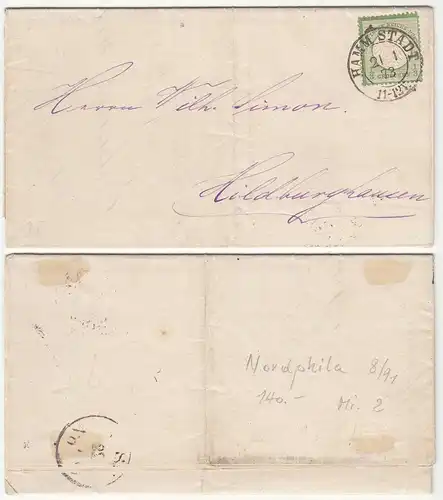 HAMM STADT
21 1
73
11-12V.
Herrn Wilh. Simon.
Hildburghausen
Nordphila 8/91
140.- Mi. 2